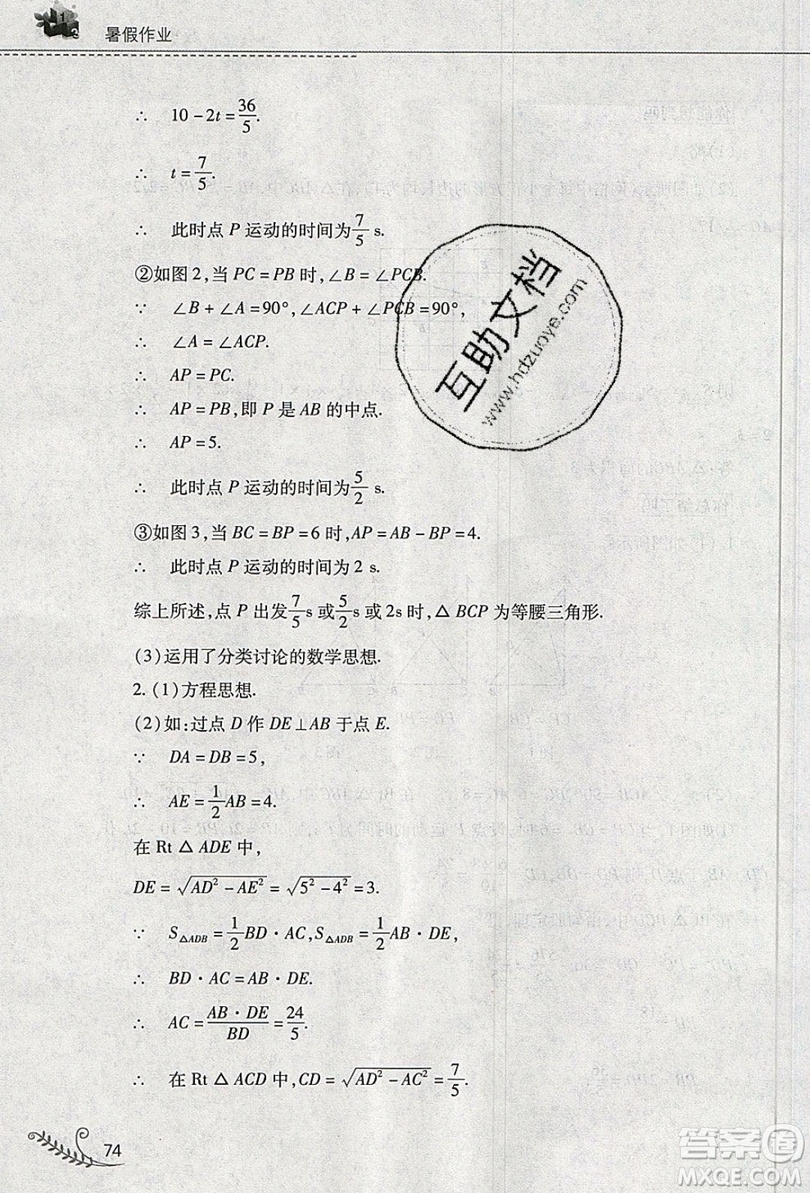 暑假作业
∴ 10-2t=36/5.
∴ t=7/5.
∴ 此时点 P 运动的时间为7/5 s.
②如图 2,当 PC=PB 时,∠B=∠PCB.
∵ ∠B+∠A=90°,∠ACP+∠PCB=90°,
∴ ∠A=∠ACP.
∴ AP=PC.
∴ AP=PB,即 P 是 AB 的中点.
∴ AP=5.
∴ 此时点 P 运动的时间为5/2 s.
③如图 3,当 BC=BP=6 时,AP=AB-BP=4.
∴ 此时点 P 运动的时间为 2 s.
综上所述,点 P 出发7/5s 或5/2s 或2s时,△BCP 为等腰三角形.
(3)运用了分类讨论的数学思想.
2. (1)方程思想.
(2)如:过点 D 作 DE⊥AB 于点 E.
∵ DA=DB=5,
∴ AE=1/2AB=4.
在 Rt△ADE 中,
DE=√(AD²-AE²)=√(5²-4²)=3.
∵ S△ADB=1/2BD·AC,S△ADB=1/2AB·DE,
∴ BD·AC=AB·DE.
∴ AC=AB·DE/BD=24/5.
∴ 在 Rt△ACD 中,CD=√(AD²-AC²)=7/5.
74
互助文档
www.hdzuoye.com
答案圈
MXQE.COM